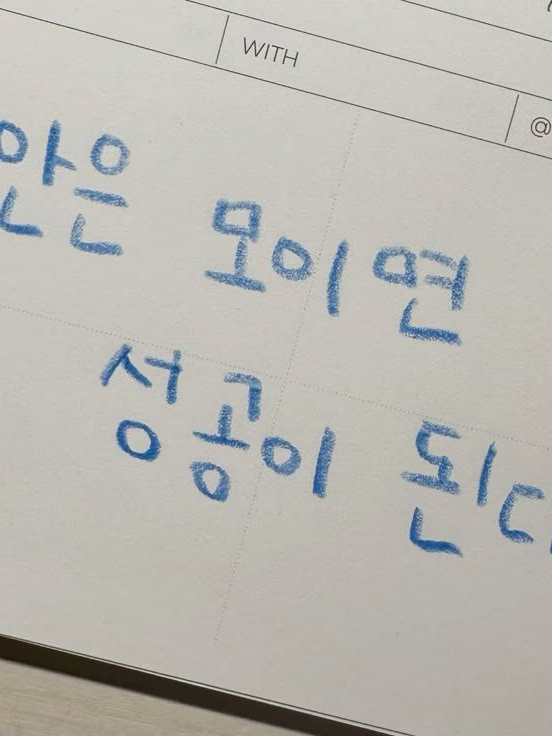 WITH
@
안은 모이면
성공이 된다